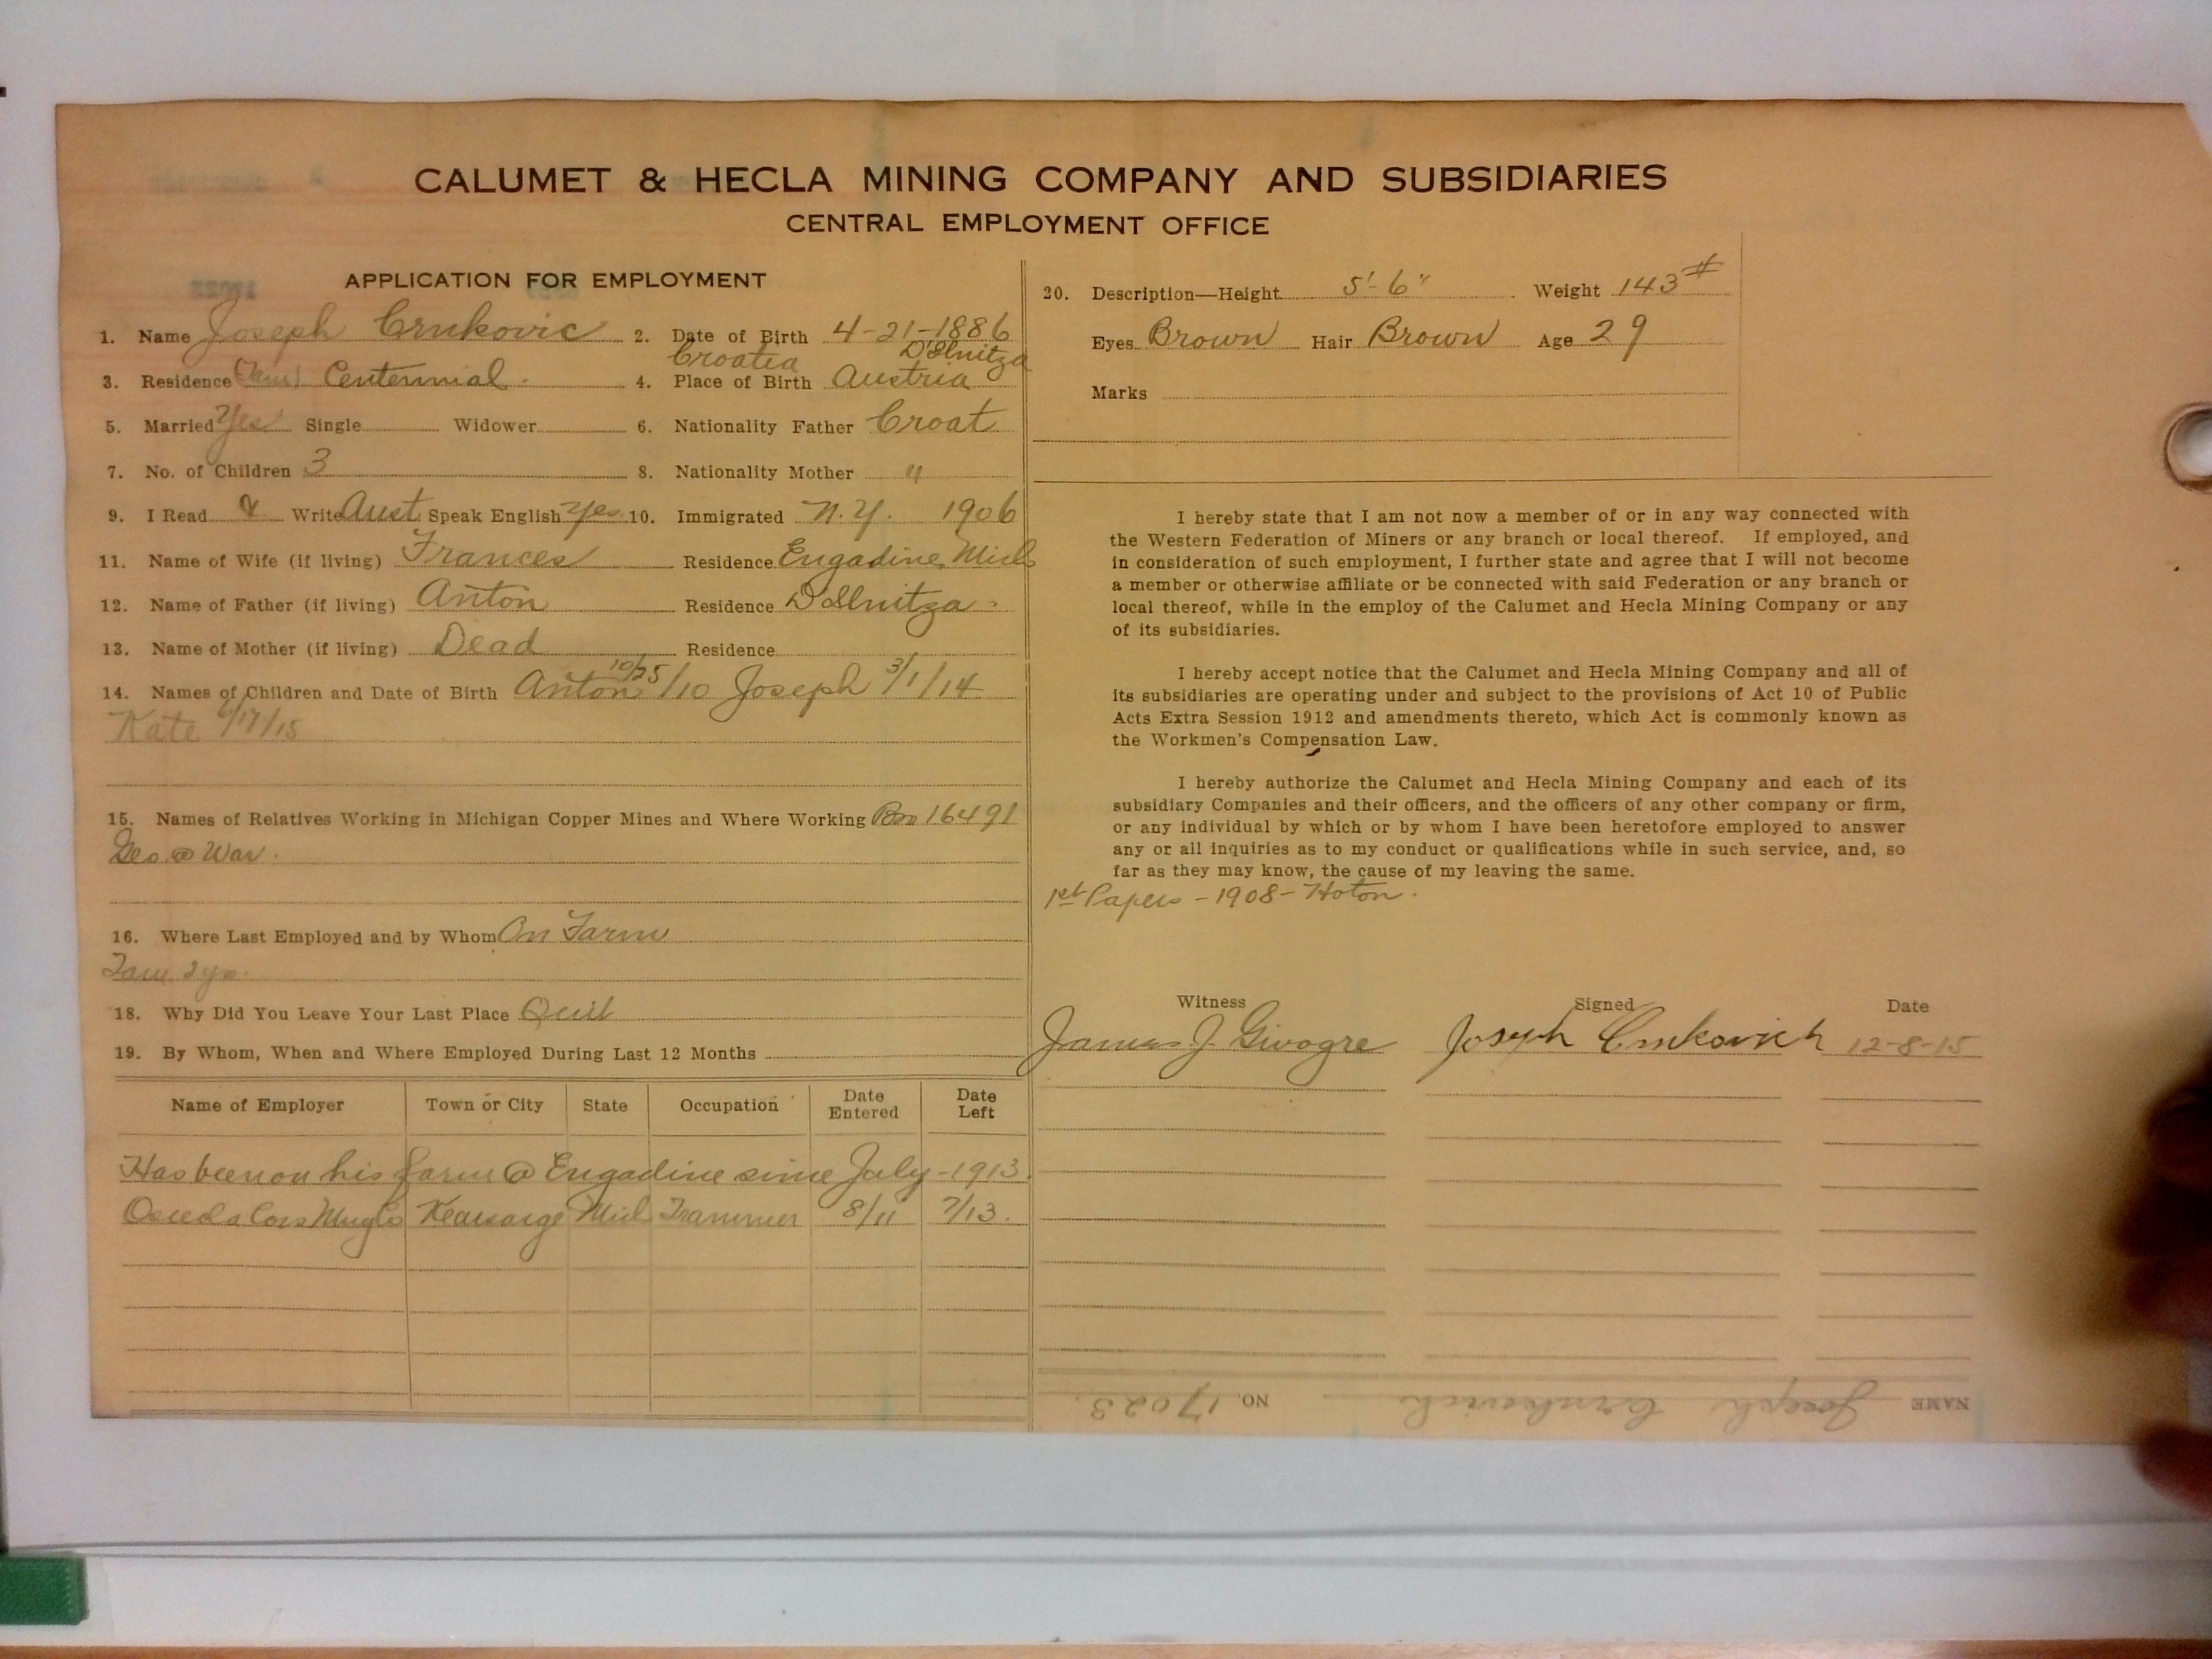 CALUMET & HECLA MINING COMPANY AND SUBSIDIARIES
CENTRAL EMPLOYMENT OFFICE
APPLICATION FOR EMPLOYMENT
1. Name Joseph Crnkovic 2. Date of Birth 4-21-1886
Croatia D'Elnitza
3. Residence Centennial. 4. Place of Birth Austria
5. Married Yes Single Widower 6. Nationality Father Croat
7. No. of Children 3 8. Nationality Mother "
9. I Read & Write Aust Speak English Yes 10. Immigrated N.Y. 1906
11. Name of Wife (if living) Frances Residence Engadine, Mich
12. Name of Father (if living) Anton Residence D'Elnitza
13. Name of Mother (if living) Dead Residence
14. Names of Children and Date of Birth Anton 10/25/10 Joseph 3/1/14
Kate /17/15
15. Names of Relatives Working in Michigan Copper Mines and Where Working Bro 16491
Geo. @ War.
16. Where Last Employed and by Whom On Farm
2 yr.
18. Why Did You Leave Your Last Place Quit
19. By Whom, When and Where Employed During Last 12 Months
Name of Employer Town or City State Occupation Date Entered Date Left
Has been on his farm @ Engadine since July - 1913.
Osceola Cons Mng Co Kearsarge Mich Trammer 8/11 7/13.
20. Description—Height 5'-6" Weight 143#
Eyes Brown Hair Brown Age 29
Marks
I hereby state that I am not now a member of or in any way connected with
the Western Federation of Miners or any branch or local thereof. If employed, and
in consideration of such employment, I further state and agree that I will not become
a member or otherwise affiliate or be connected with said Federation or any branch or
local thereof, while in the employ of the Calumet and Hecla Mining Company or any
of its subsidiaries.
I hereby accept notice that the Calumet and Hecla Mining Company and all of
its subsidiaries are operating under and subject to the provisions of Act 10 of Public
Acts Extra Session 1912 and amendments thereto, which Act is commonly known as
the Workmen's Compensation Law.
I hereby authorize the Calumet and Hecla Mining Company and each of its
subsidiary Companies and their officers, and the officers of any other company or firm,
or any individual by which or by whom I have been heretofore employed to answer
any or all inquiries as to my conduct or qualifications while in such service, and, so
far as they may know, the cause of my leaving the same.
1st Papers - 1908 - Hoton.
Witness Signed Date
James J. Givogre Joseph Crnkovich 12-8-15
NAME Joseph Crnkovich NO. 17023.